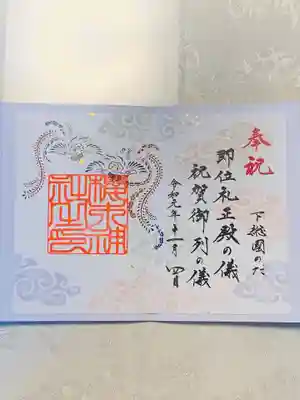 奉祝
下総國のた
即位礼正殿の儀
祝賀御列の儀
令和元年十一月四日
櫻木神社之印